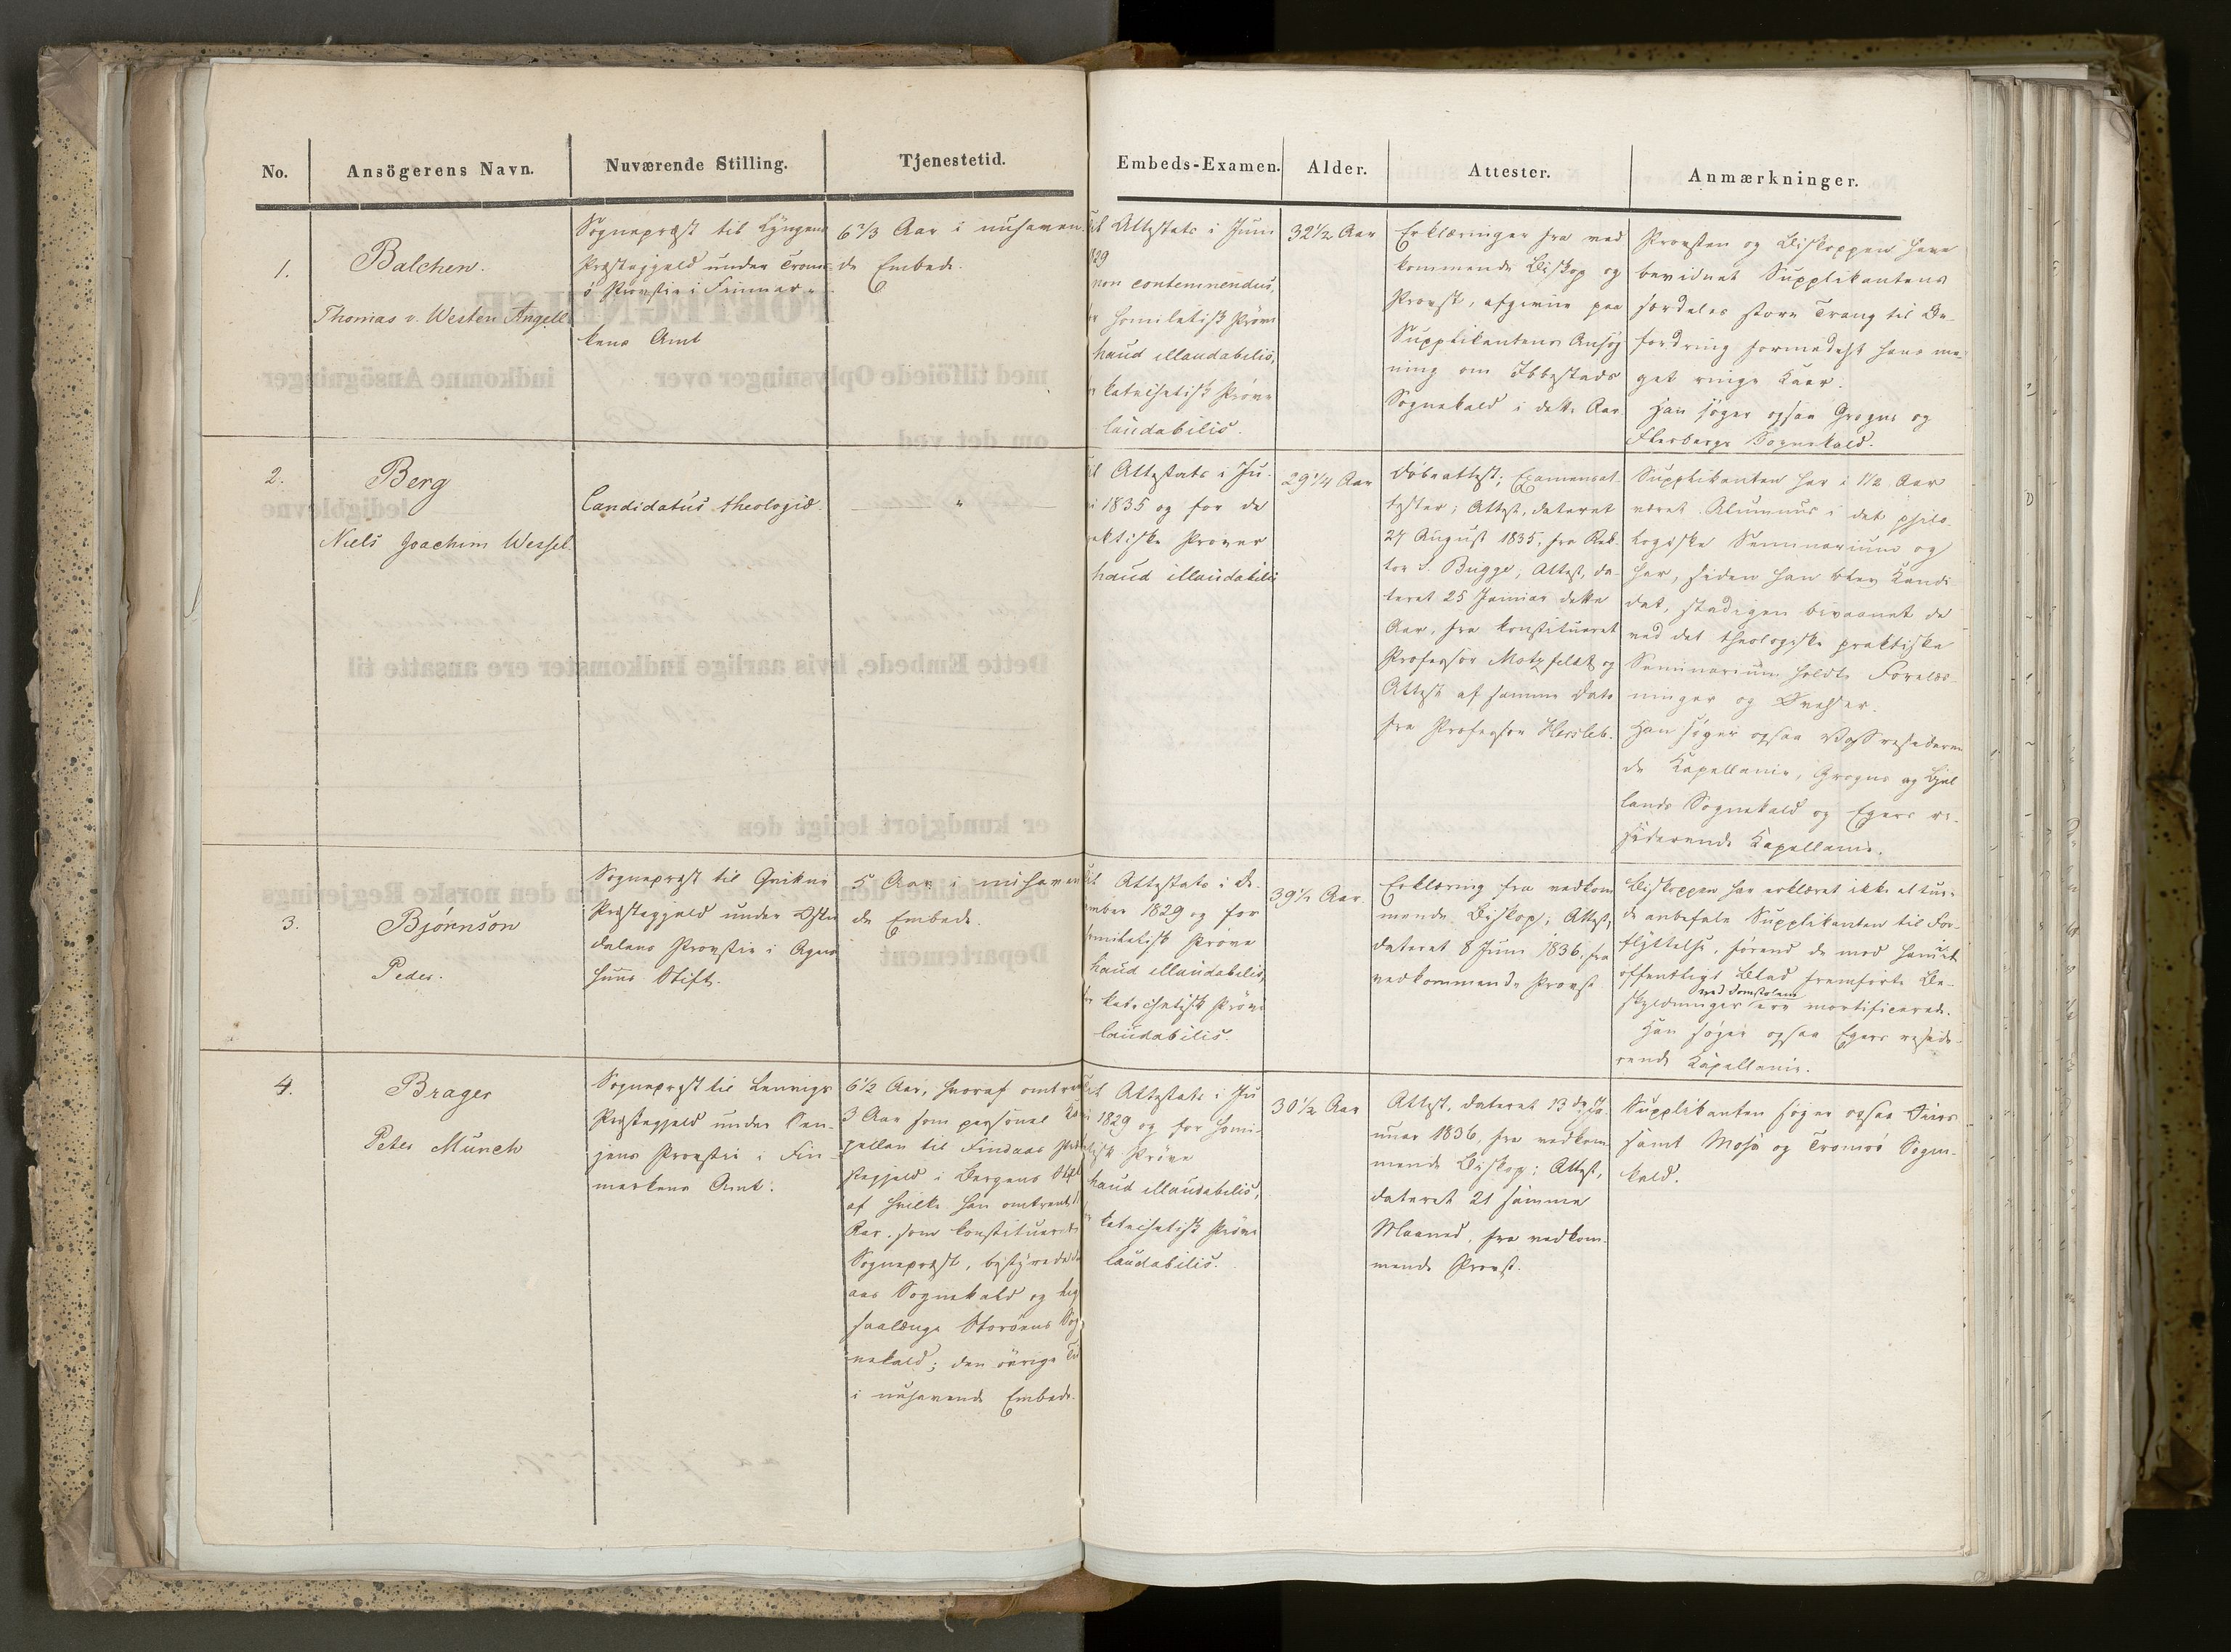 No.
Ansögerens Navn.
Nuværende Stilling.
Tjenestetid.
Embeds-Examen.
Alder.
Attester.
Anmærkninger.
1.
Balchen.
Thomas v. Westen Angell
Sognepræst til Lyngens
Præstegjeld under Troms-
ø Provstie i Finmar-
kens Amt
6 2/3 Aar i nuhaven-
de Embede.
Attestats i Juni
829
non contemnendus,
homiletisk Prøve
haud illaudabilis,
katechetisk Prøve
laudabilis.
32 1/2 Aar
Erklæringer fra ved
kommende Biskop og
Provst, afgivne paa
Supplikantens Ansøg
ning om Ibbestads
Sognekald i dette Aar.
Provsten og Biskoppen have
bevidnet Supplikantens
særdeles store Trang til Be-
fordring formedelst hans me-
get ringe Kaar.
Han søger ogsaa Grogns og
Flesbergs Sognekald.
2.
Berg
Niels Joachim Wessel
Candidatus theologiæ
"
Attestats i Ju-
i 1835 og for de
aktiske Prøver
haud illaudabilis
29 1/4 Aar
Døbeattest; Examensat-
tester; Attest, dateret
27 August 1835, fra Rek-
tor S. Bugge; Attest, da-
teret 25 Januar dette
Aar, fra konstitueret
Professor Motzfeldt og
Attest af samme Dato
fra Professor Hersleb.
Supplikanten har i 1 1/2 Aar
været Alumnus i det philo-
logiske Seminarium og
har, siden han blev Kandi
dat, stadigen bivaanet de
ved det theologiske praktiske
Seminarium holdte Forelæs-
ninger og Øvelser.
Han søger ogsaa Voss residere
de Kapellanie, Grogns og Hjel
lands Sognekald og Egers re-
siderende Kapellanie.
3.
Bjørnson
Peder.
Sognepræst til Qvikne
Præstegjeld under Øster
dalens Provstie i Agers
huus Stift.
5 Aar i nuhaven
de Embede.
Attestats i De-
ember 1829 og for
omiletisk Prøve
haud illaudabilis,
katechetisk Prøve
laudabilis.
39 1/2 Aar.
Erklæring fra vedkom
mende Biskop; Attest,
dateret 8 Juni 1836, fra
vedkommende Provst
Biskoppen har erklæret ikke at tur-
de anbefale Supplikanten til For-
flyttelse, førend de mod ham i et
offentligt Blad fremførte Be-
ved Domstolene
skyldninger ere mortificerede.
Han søger ogsaa Egers reside-
rende Kapellanie.
4.
Brager
Peter Munch
Sognepræst til Lenvigs
Præstegjeld under Sen-
jens Provstie i Fin-
markens Amt.
6 1/2 Aar, hvoraf omtren
3 Aar som personel Ka
pellan til Findaas Præ
stegjeld i Bergens Stift
af hvilke han omtrent
Aar som konstitueret
Sognepræst, bestyrede
aas Sognekald og lig
saalænge Storøens Sog
nekald; den øvrige Tid
i nuhavende Embede.
Attestats i Ju
i 1829 og for homi-
letisk Prøve
haud illaudabilis,
katechetisk Prøve
laudabilis.
30 1/2 Aar
Attest, dateret 13de Ja-
nuar 1836, fra vedkom-
mende Biskop; Attest,
dateret 21 samme
Maaned, fra vedkom-
mende Provst.
Supplikanten søger ogsaa
samt Moss og Tromsø Sogne-
kald.